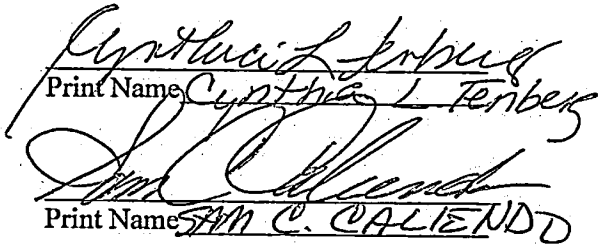 Cynthia L Tenberg
Print Name Cynthia L Tenberg
Sam C Caliendo
Print Name SAM C. CALIENDO